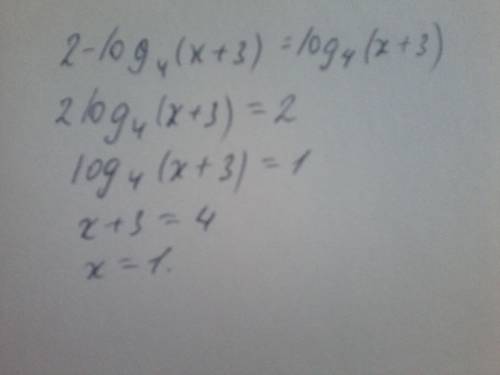 2-log₄(x+3) = log₄(x+3)
2log₄(x+3) = 2
log₄(x+3) = 1
x+3 = 4
x = 1.